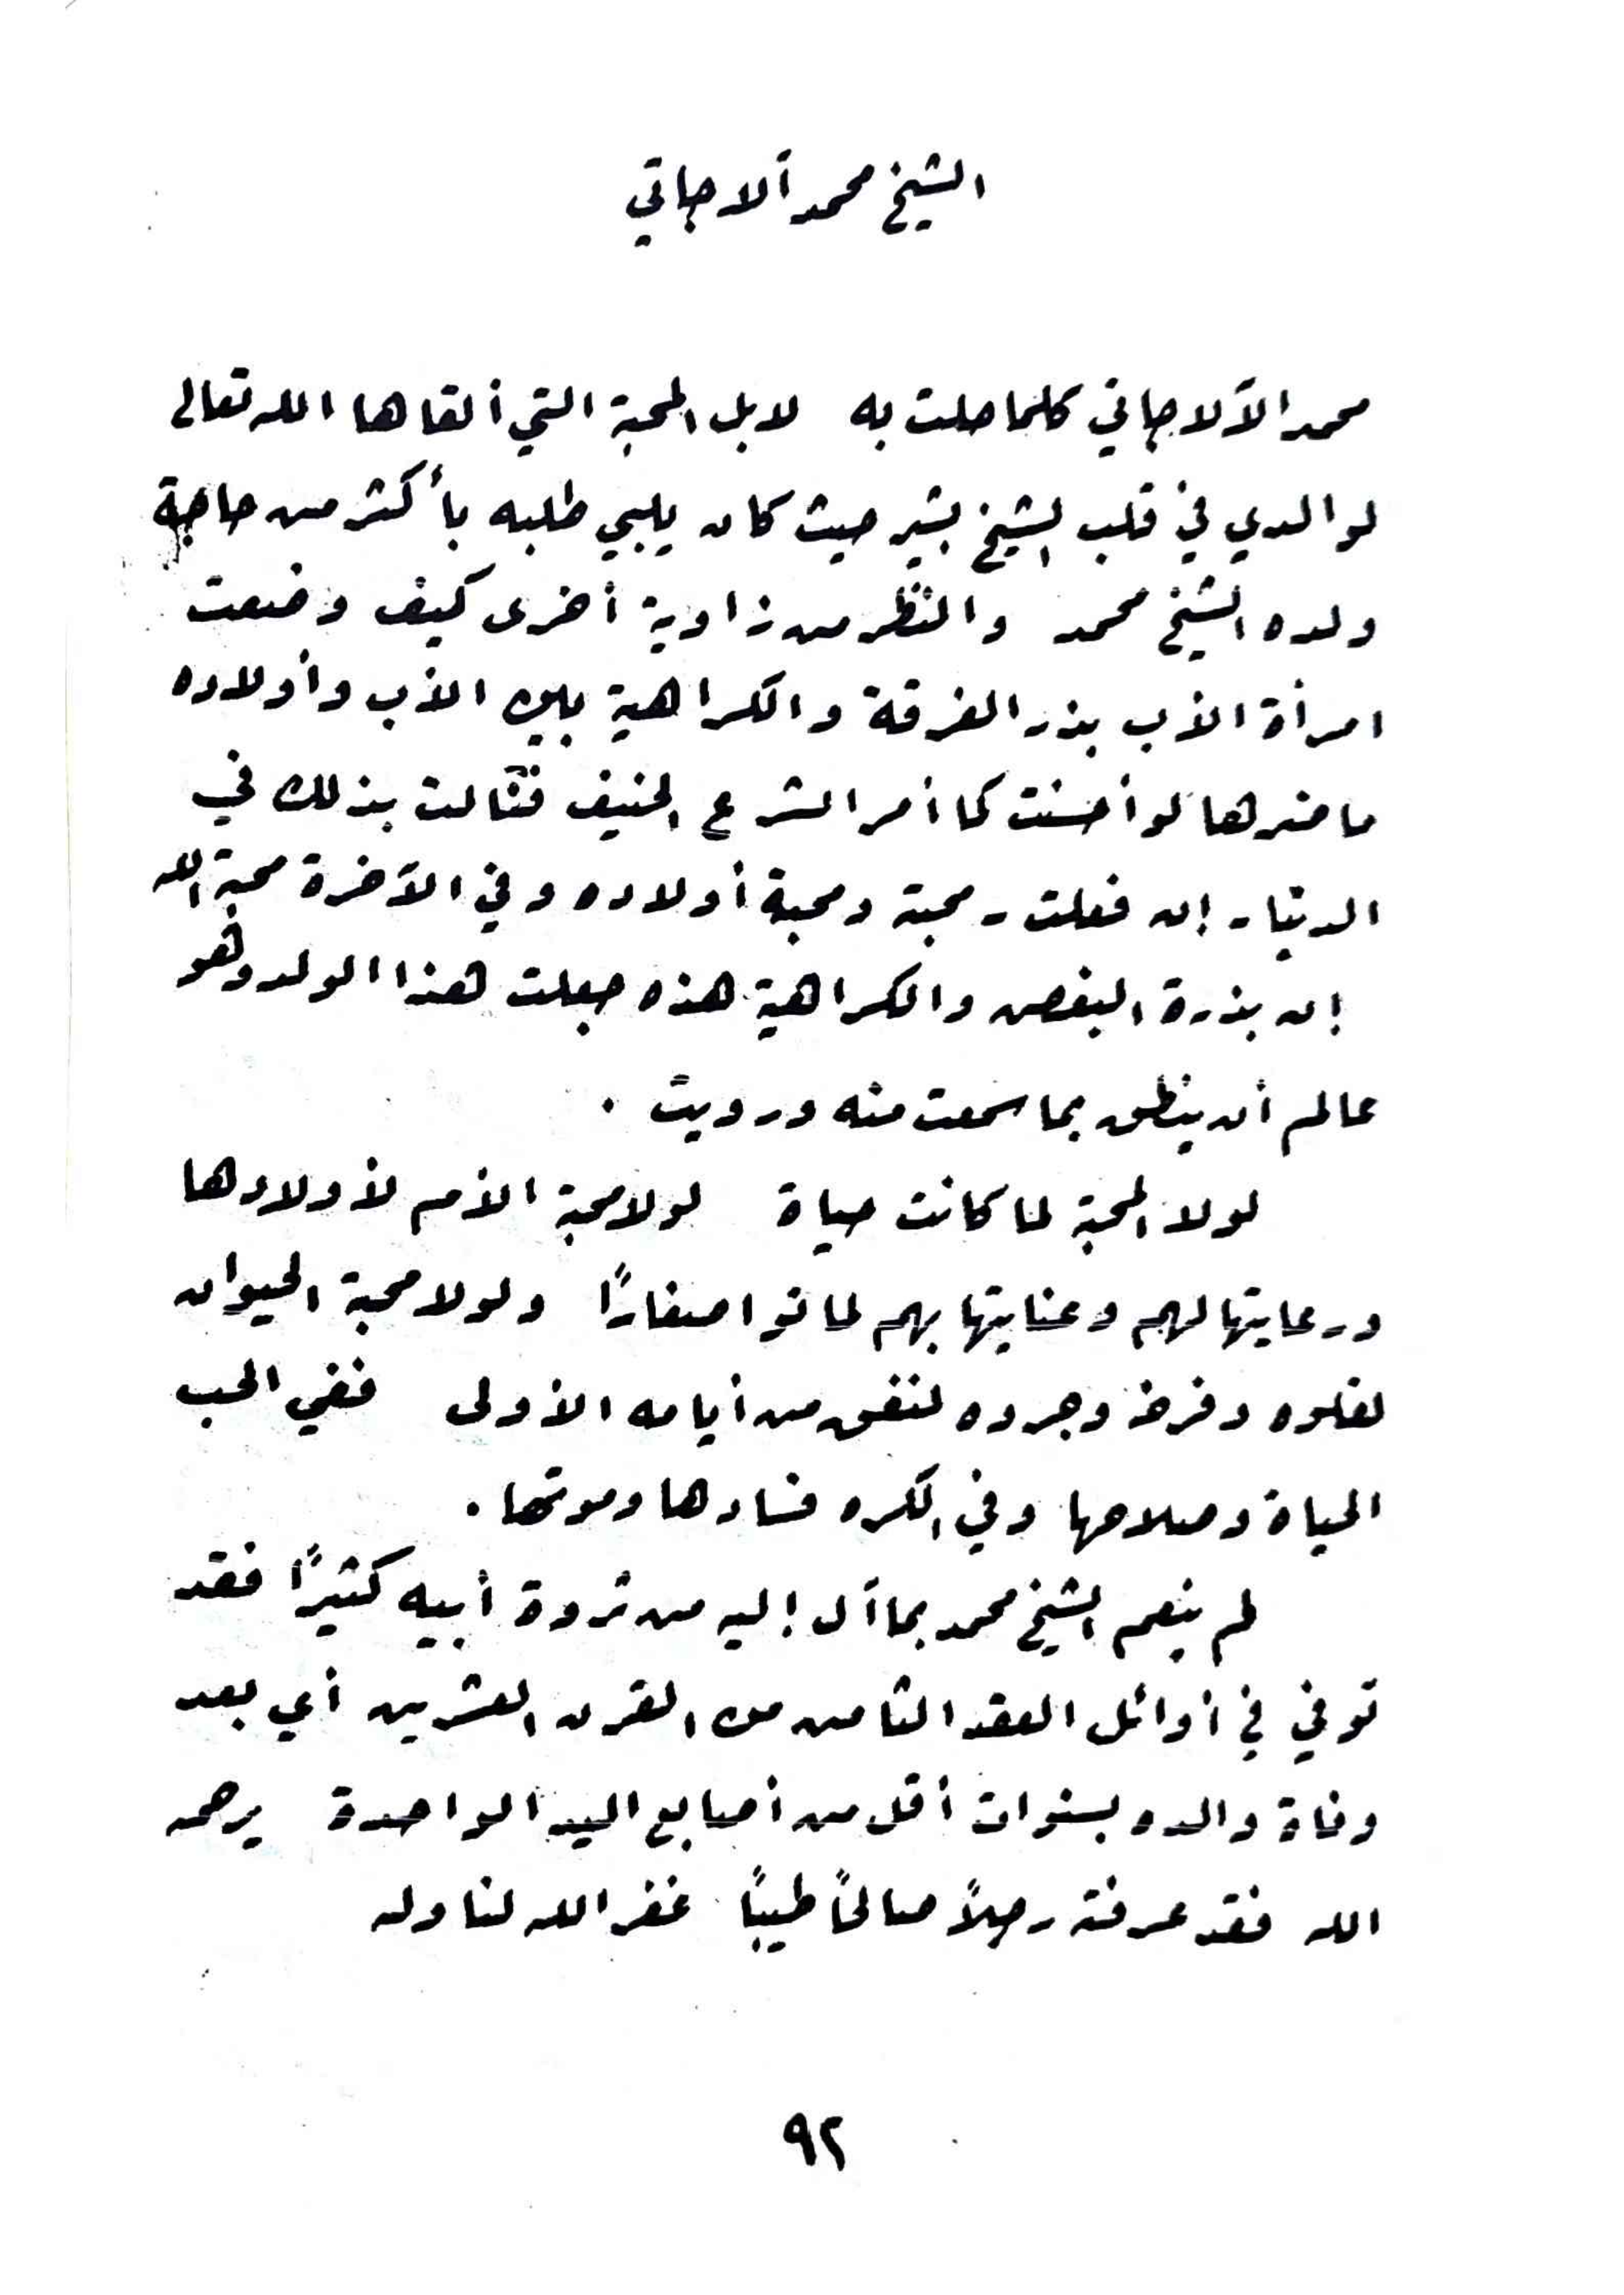 الشيخ محمد آلاجاتي
محمد الآلاجاتي كلما حلت به لا بل المحبة التي ألقاها الله تعالى
لوالدي في قلب الشيخ بشير حيث كان يلبي طلبه بأكثر من حاجة
ولده الشيخ محمد والنظر من زاوية أخرى كيف وضعت
امرأة الأب بذر الفرقة والكراهية بين الأب وأولاده
ما ضرها لو أحسنت كما أمر الشرع الحنيف فنالت بذلك في
الدنيا - إن فعلت - محبة ومحبة أولاده وفي الآخرة محبة الله
إن بذرة البغض والكراهية هذه جعلت هذا الولد وهو
عالم أن ينطق بما سمعت منه ورويت .
لولا المحبة لما كانت حياة لولا محبة الأم لأولادها
ورعايتها لهم وعنايتها بهم لماتوا صغارًا ولولا محبة الحيوان
لفلوه وفرخه وجروه لنفق من أيامه الأولى ففي الحب
الحياة وصلاحها وفي الكره فسادها وموتها .
لم ينعم الشيخ محمد بما آل إليه من ثروة أبيه كثيرًا فقد
توفي في أوائل العقد الثامن من القرن العشرين أي بعد
وفاة والده بسنوات أقل من أصابع اليد الواحدة يرحمه
الله فقد عرفته رجلاً صالحاً طيبًا غفر الله لنا وله
٩٢